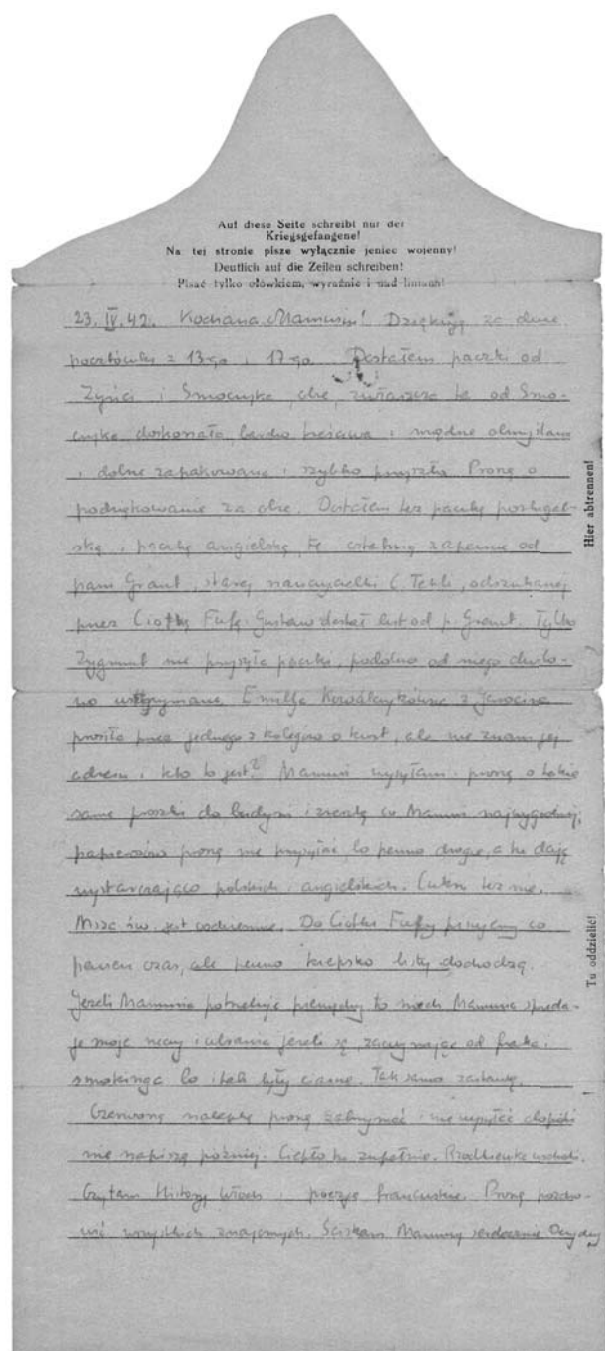 Auf diese Seite schreibt nur der
Kriegsgefangene!
Na tej stronie pisze wyłącznie jeniec wojenny!
Deutlich auf die Zeilen schreiben!
Pisać tylko ołówkiem, wyraźnie i nad liniami!
23. IV. 42. Kochana Mamusiu! Dziękuję za dwie
pocztówki z 13-go i 17-go. Dostałem paczki od
i obie, zwłaszcza ta od Smo-
doskonała bardzo i
i dobrze zapakowana i szybko przyszła. Proszę o
podziękowanie za obie. Dostałem też paczkę portugal-
ską i paczkę angielską, tę ostatnią zapewne od
pani Grant, starej nauczycielki C. Tekli, odszukanej
przez Ciotkę Fufę. Gustaw dostał list od p. Grant. Tylko
Zygmunt nie przysyła paczki, podobno od niego chwilo-
wo wstrzymane. Emilja z Jarocina
prosiła przez jednego z kolegów o, ale nie znam jej
adresu i kto to jest? Mamusi wysyłam i proszę o takie
same proszki do budyni i zresztą co Mamusi najwygodniej,
papierosów proszę nie przysyłać, bo pewno drogie, a tu dają
wystarczająco polskich i angielskich. Cukru też nie.
Msza św. jest codziennie. Do Ciotki Fufy piszemy co
pewien czas, ale pewno kiepsko listy dochodzą.
Jeżeli Mamusia potrzebuje pieniędzy to niech Mamusia sprzeda-
je moje rzeczy i ubrania jeżeli są, zaczynając od fraka i
smokinga bo i tak były ciasne. Tak samo zastawę.
Czerwoną nalepkę proszę zatrzymać i nie wysyłać dopóki
nie napiszę później. Ciepło tu zupełnie. Rzodkiewka wschodzi.
Czytam Historję Włoch i poezje francuskie. Proszę pozdro-
wić wszystkich znajomych. Ściskam Mamusię serdecznie
Hier abtrennen!
Tu oddzielić!